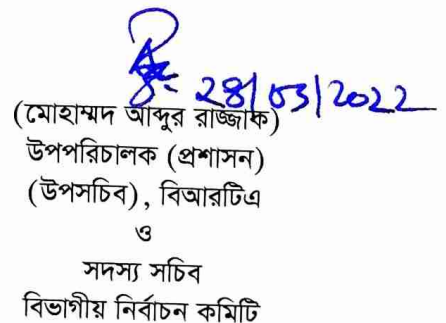 28/03/2022
(মোহাম্মদ আব্দুর রাজ্জাক)
উপপরিচালক (প্রশাসন)
(উপসচিব), বিআরটিএ
ও
সদস্য সচিব
বিভাগীয় নির্বাচন কমিটি